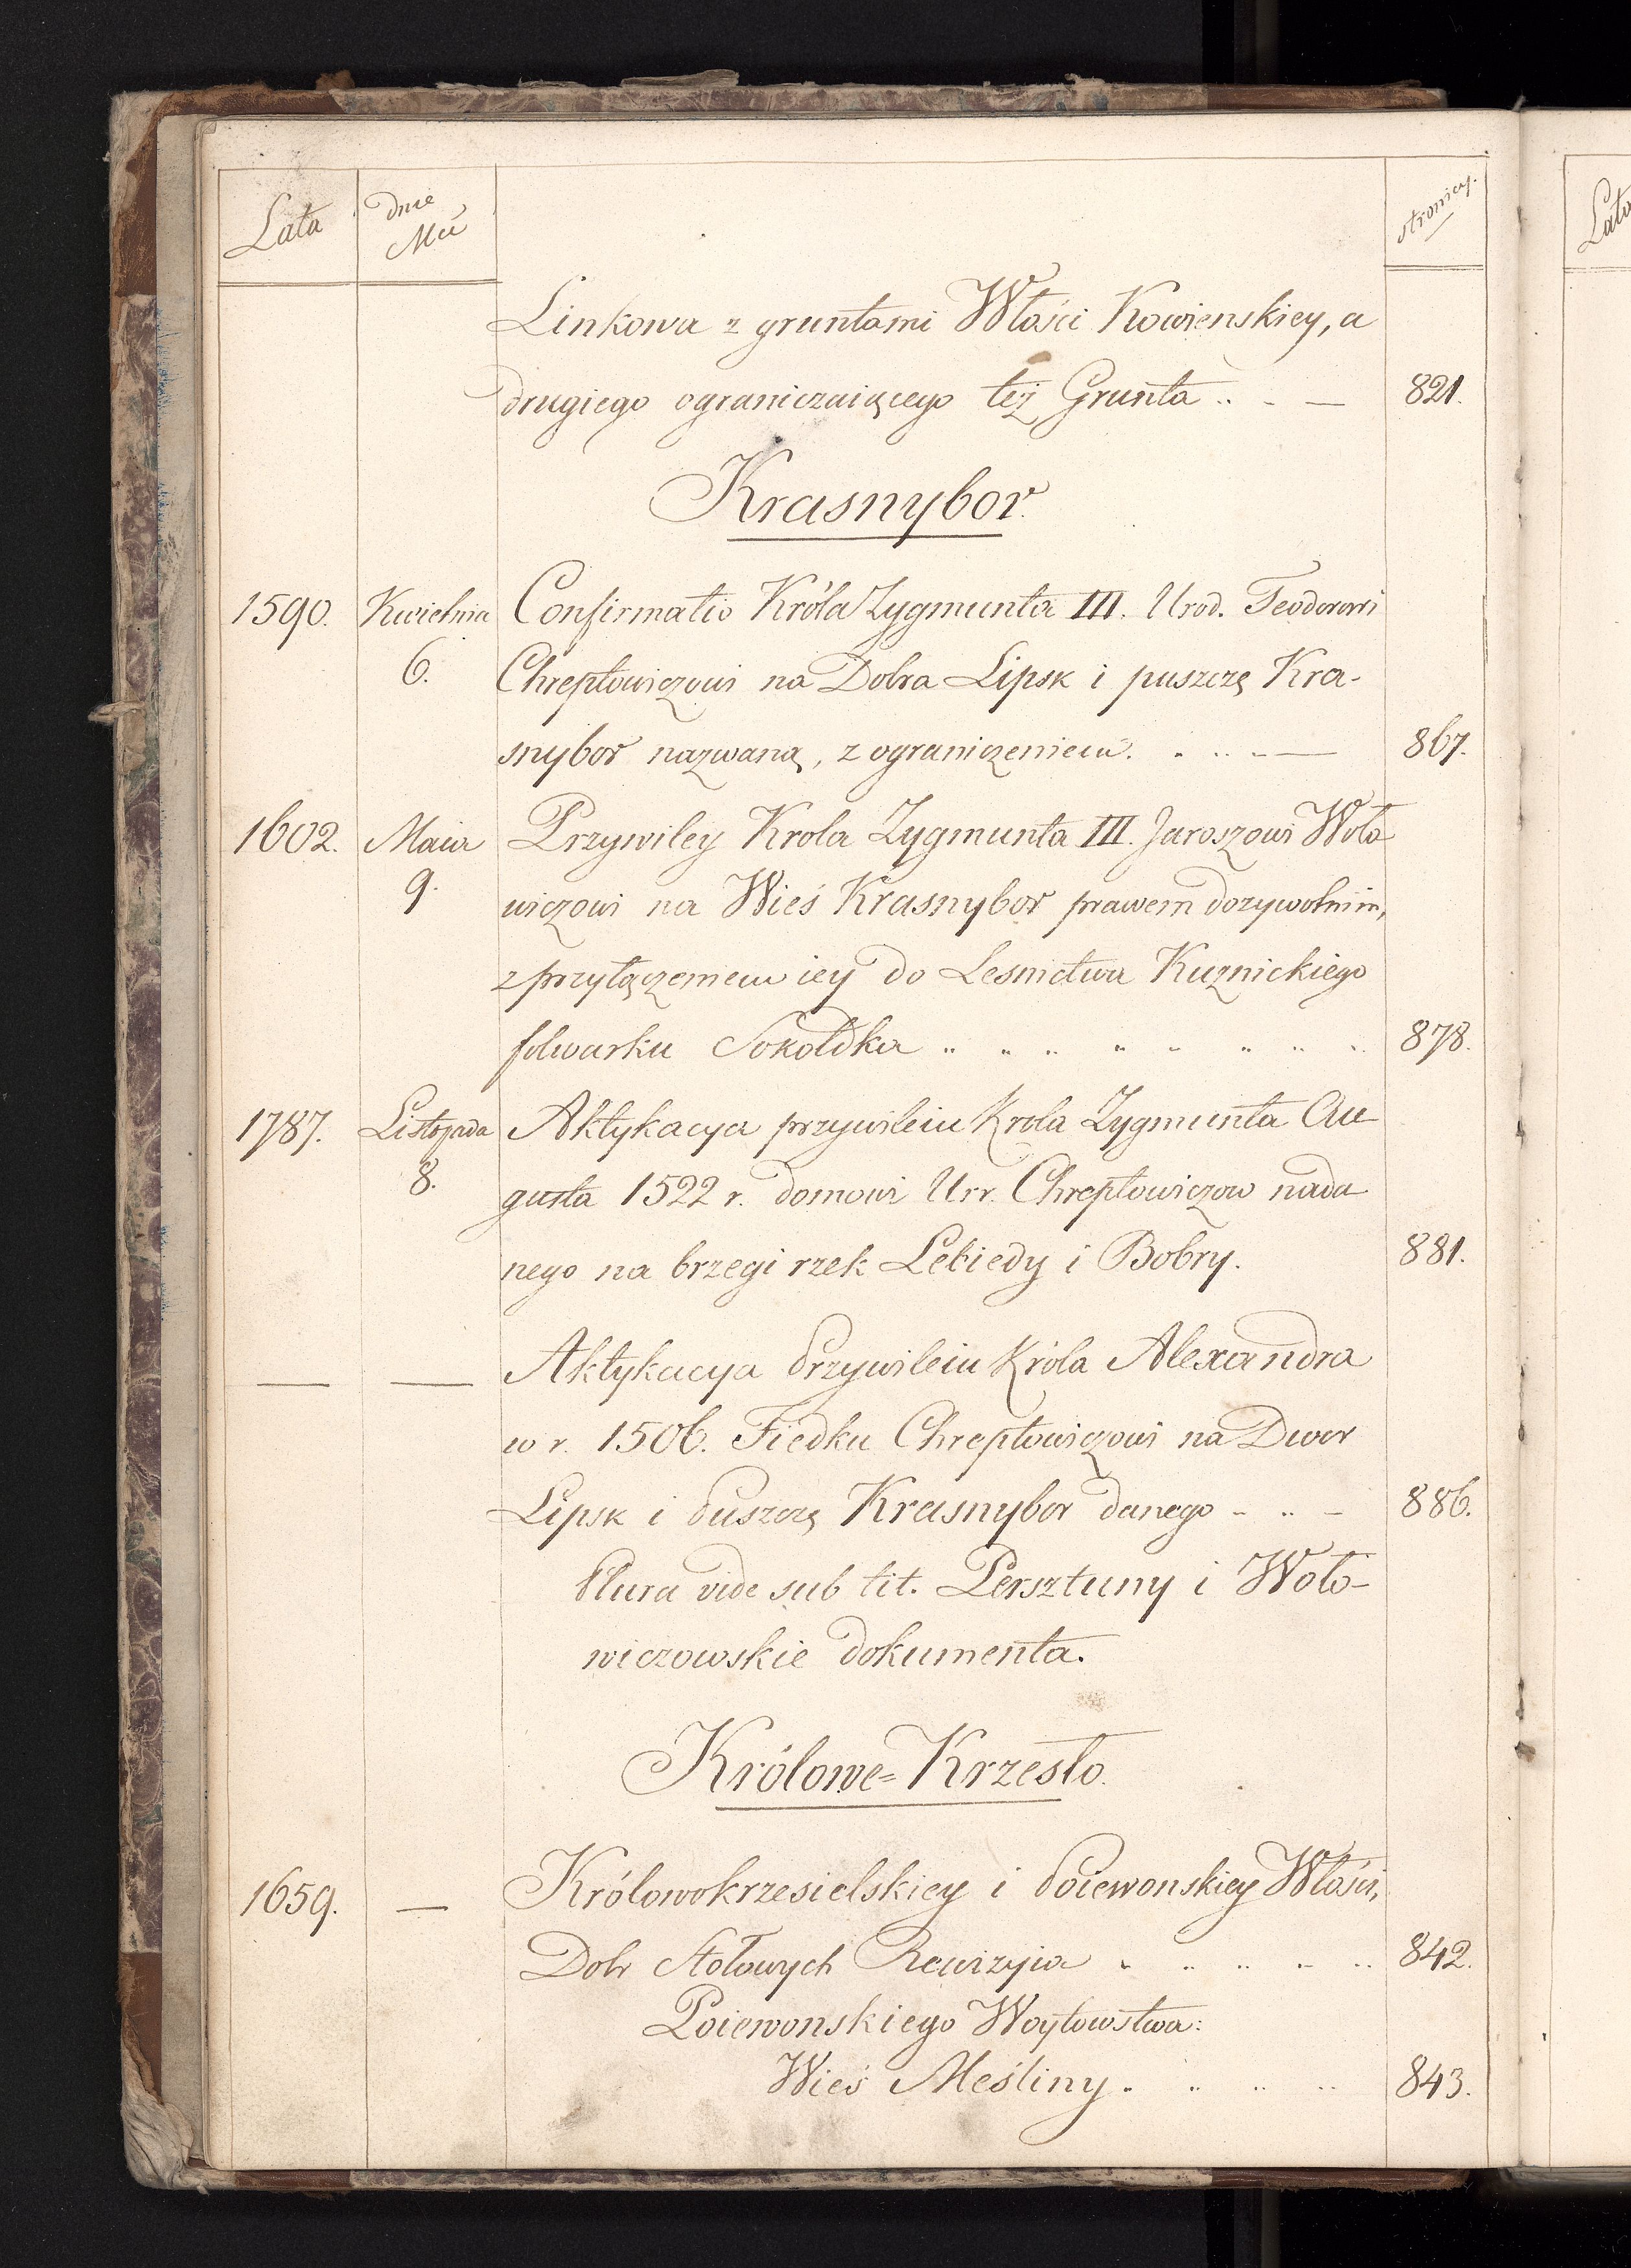 Lata
dnie
Mca
stronicy.
Linkowa z gruntami Włości Kowienskiey, a
drugiego ograniczaiącego też Grunta .. - — 821.
Krasnybor.
1590. Kwietnia Confirmatio Króla Zygmunta III. Urod. Teodorowi
6. Chreptowiczowi na Dobra Lipsk i puszczę Kra-
snybor nazwaną, z ograniczeniem. . .. - — 867.
1602. Maia Przywiley Krola Zygmunta III. Jaroszowi Woło
9. wiczowi na Wieś Krasnybor prawem dozywotnim,
z przyłączeniem iey do Lesnictwa Kuznickiego
folwarku Sokołdka .. .. .. .. .. .. .. .. 878.
1787. Listopada Aktykacya przywileiu Krola Zygmunta Au
8. gusta 1522 r. domowi Urr. Chreptowiczow nada
nego na brzegi rzek Lebiedy i Bobry. 881.
— — Aktykacya Przywileiu Króla Alexandra
w r. 1506. Fiedku Chreptowiczowi na Dwor
Lipsk i Puszczę Krasnybor danego - .. - 886.
Plura vide sub tit. Persztuny i Woło-
wiczowskie dokumenta.
Królowe=Krzesło.
1659. — Królowokrzesielskiey i Poiewonskiey Włości,
Dobr Stołowych Rewizyia . .. .. .. .. 842.
Poiewonskiego Woytowstwa:
Wieś Meśliny . .. .. .. 843.
Lata